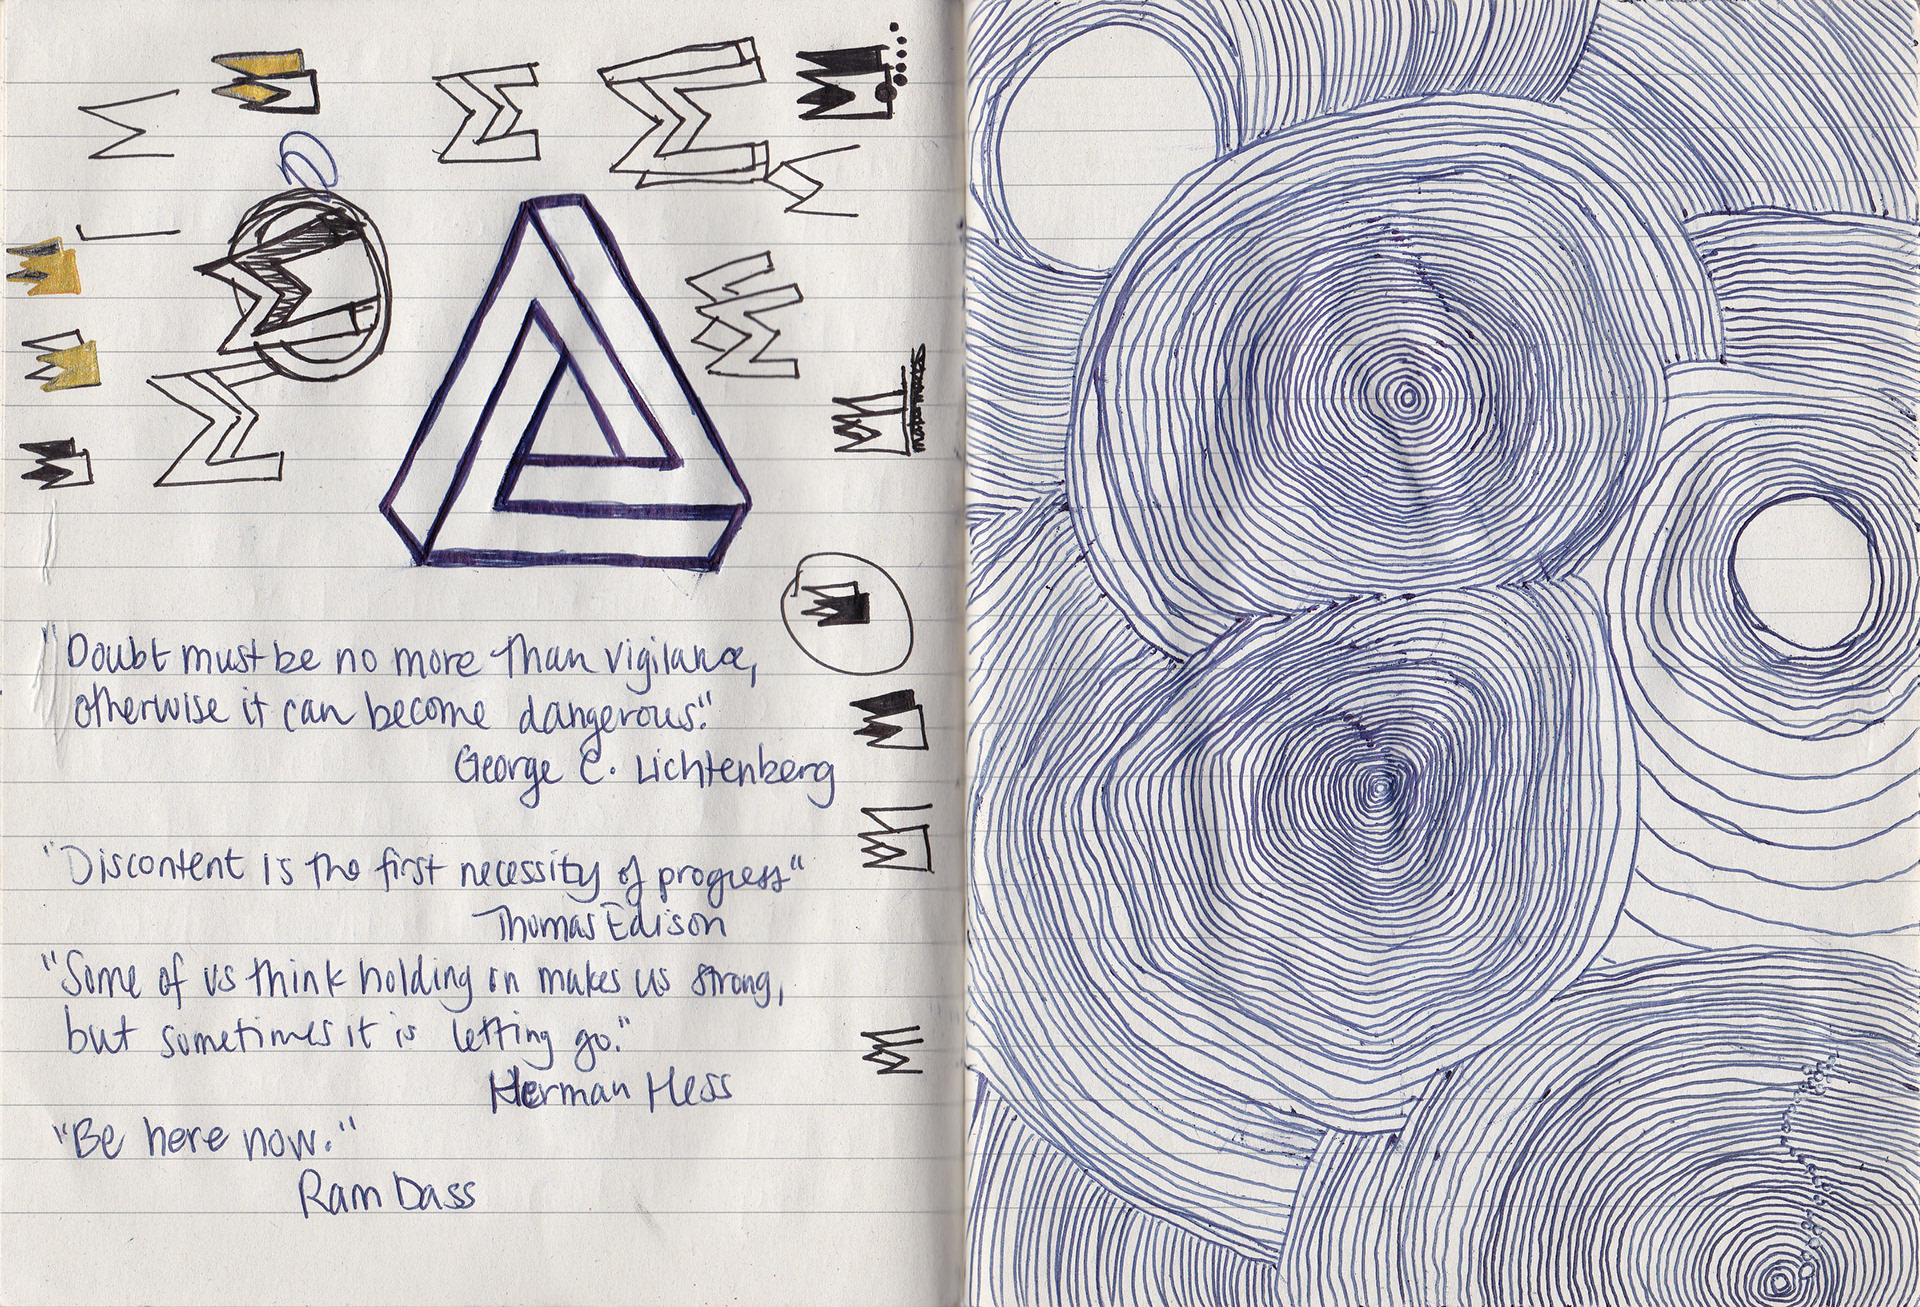 "Doubt must be no more than vigilance,
otherwise it can become dangerous."
George C. Lichtenberg
"Discontent is the first necessity of progress"
Thomas Edison
"Some of us think holding on makes us strong,
but sometimes it is letting go."
Herman Hess
"Be here now."
Ram Dass